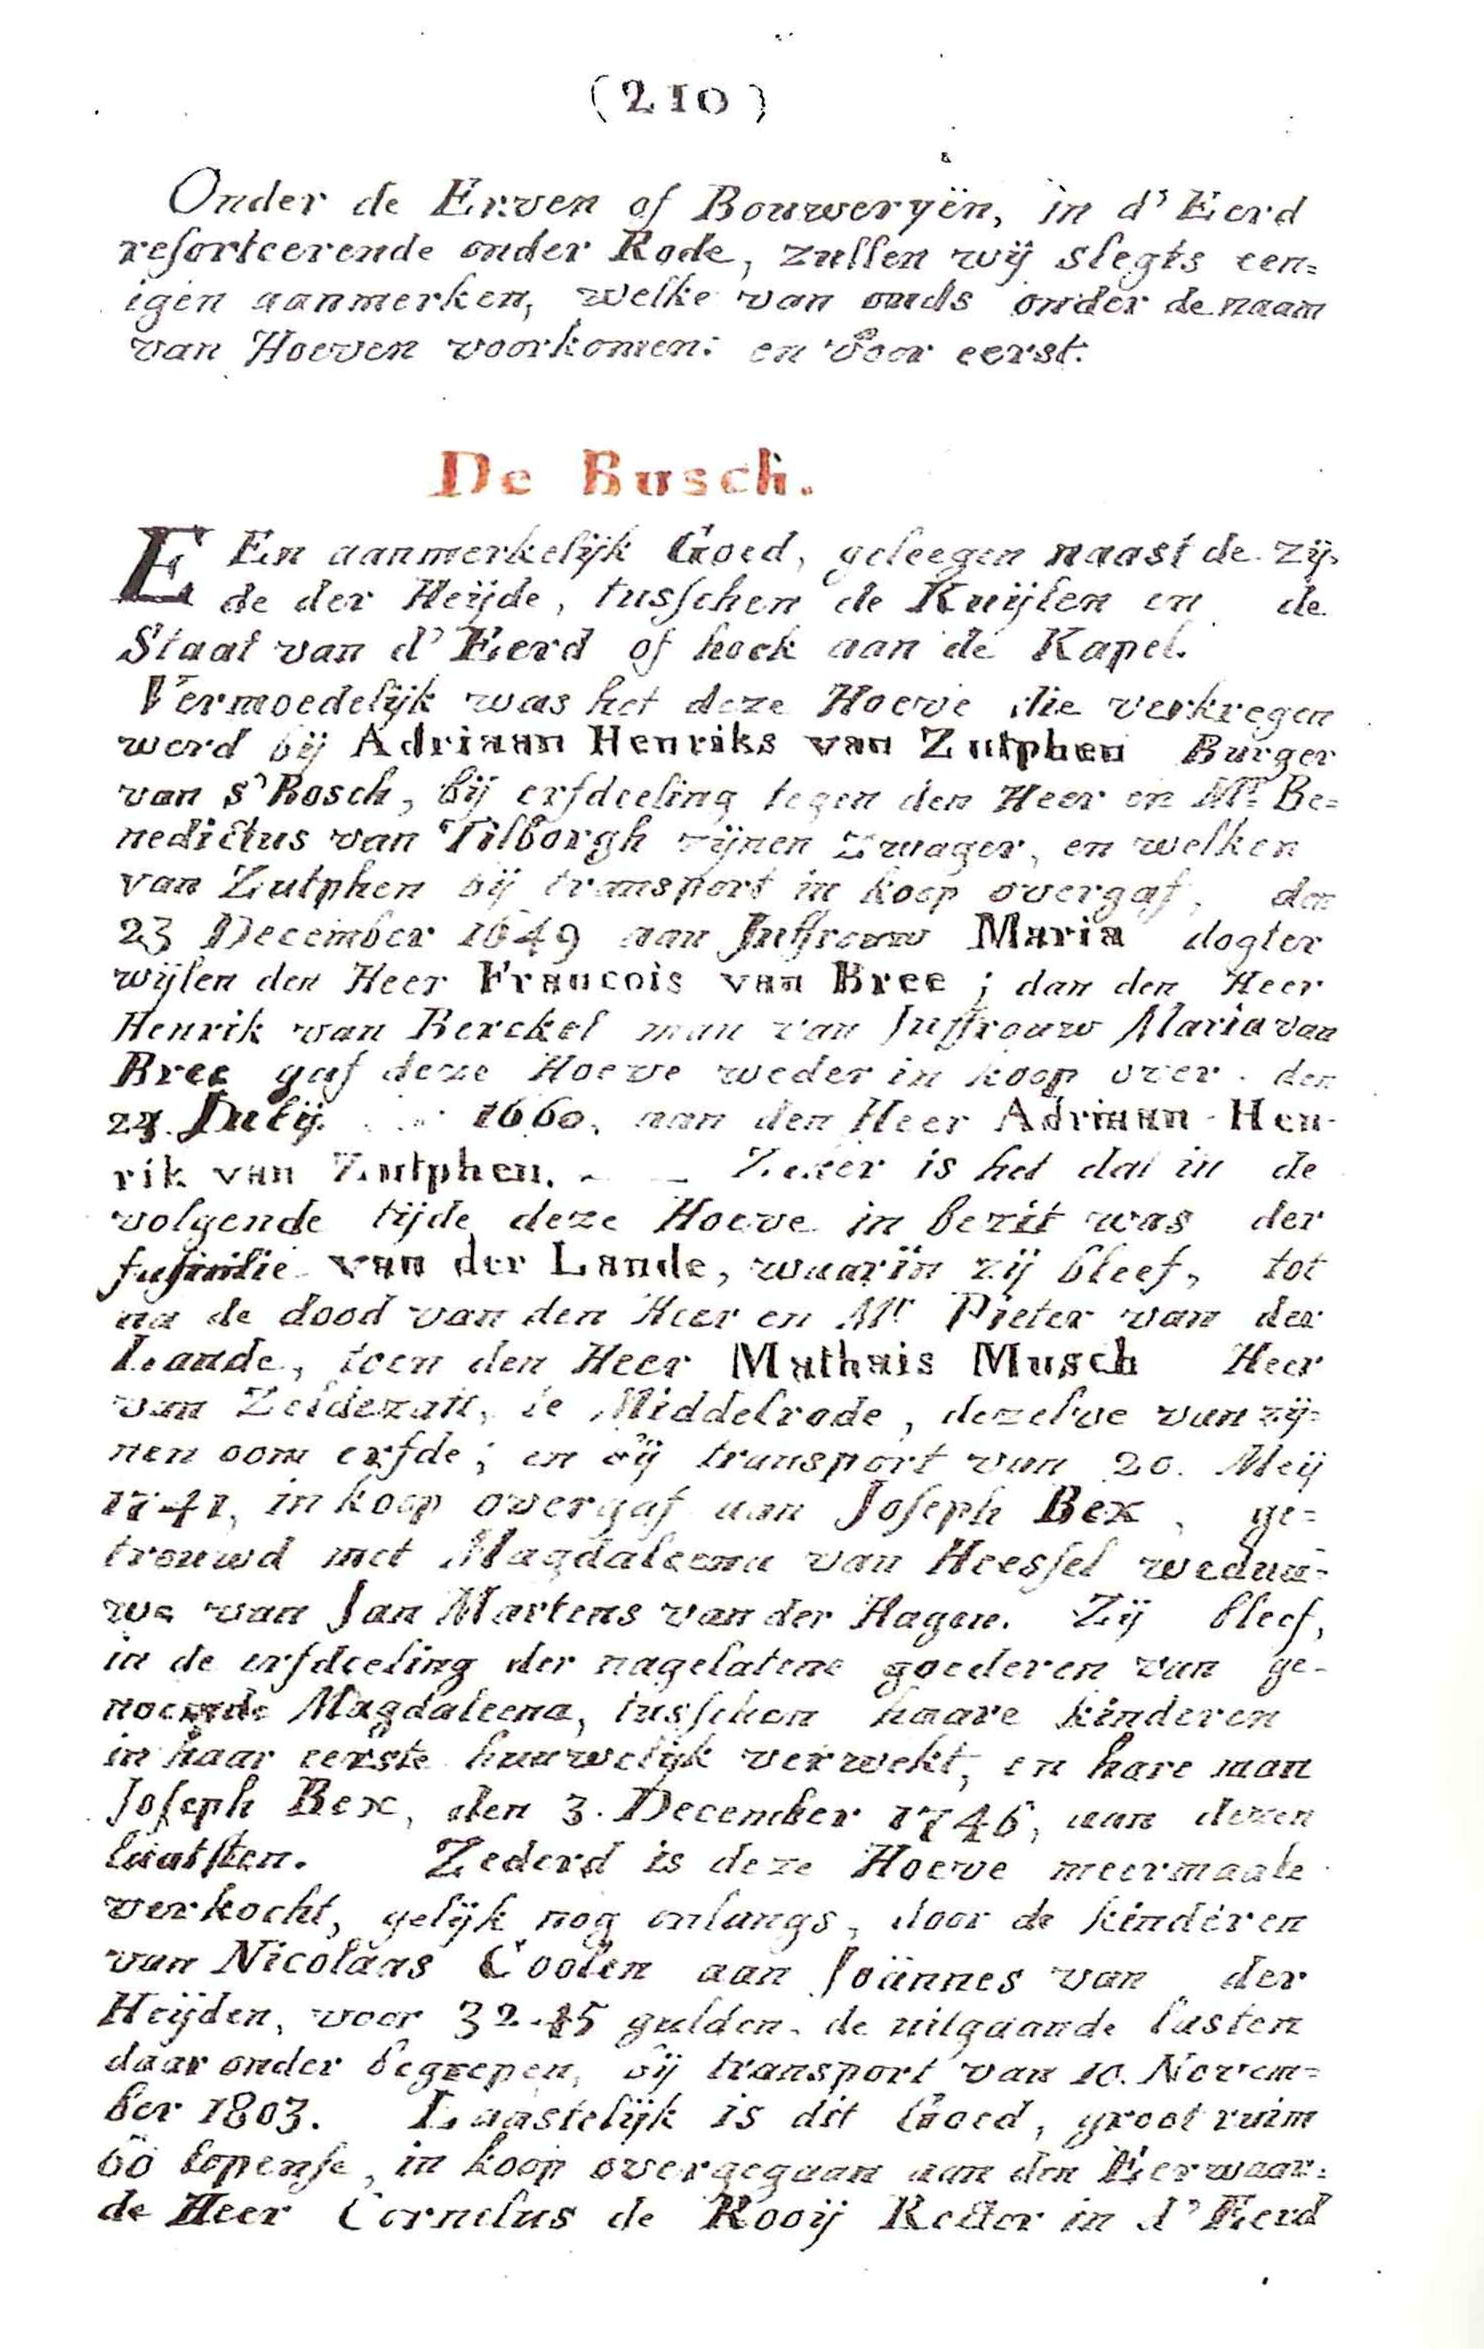 (210)
Onder de Erven of Bouweryën, in d' Eerd
resorteerende onder Rode, zullen wij slegts een=
igen aanmerken, welke van ouds onder de naam
van Hoeven voorkomen: en voor eerst:
De Busch.
EEn aanmerkelijk Goed, geleegen naast de zij-
de der Heijde, tusschen de Kuijlen en de
Staat van d' Eerd of hoek aan de Kapel.
Vermoedelijk was het deze Hoeve die verkregen
werd bij Adriaan Henriks van Zutphen Burger
van s'Bosch, bij erfdeeling tegen den Heer en Mr. Be=
nedictus van Tilborgh zijnen Zwager, en welken
van Zutphen bij transport in koop overgaf, den
23 December 1649 aan Juffrouw Maria dogter
wijlen den Heer Francois van Bree; dan den Heer
Henrik van Berckel man van Juffrouw Maria van
Bree gaf deze Hoeve weder in koop over den
24 Julij 1660, aan den Heer Adriaan Hen-
rik van Zutphen. Zeker is het dat in de
volgende tijde deze Hoeve in bezit was der
familie van der Lande, waarin zij bleef, tot
na de dood van den Heer en Mr Pieter van der
Lande, toen den Heer Mathais Musch Heer
van Zeldezatt, te Middelrode, dezelve van zij=
nen oom erfde; en bij transport van 20. Meij
1741, in koop overgaf aan Joseph Bex, ge=
trouwd met Magdaleena van Heessel weduu=
we van Jan Martens van der Hagen. Zij bleef,
in de erfdeeling der nagelatene goederen van ge-
noemde Magdaleena, tusschen haare kinderen
in haar eerste huuwelijk verwekt, en hare man
Joseph Bex, den 3. December 1746, aan dezen
laatsten. Zederd is deze Hoeve meermaale
verkocht, gelijk nog onlangs, door de kinderen
van Nicolaas Coolen aan Joannes van der
Heijden, voor 32-15 gulden, de uitgaande lasten
daar onder begrepen, bij transport van 10. Novem=
ber 1803. Laastelijk is dit Goed, groot ruim
60 lopense, in koop overgegaan aan den Eerwaar=
de Heer Cornelus de Rooij Rector in d' Eerd